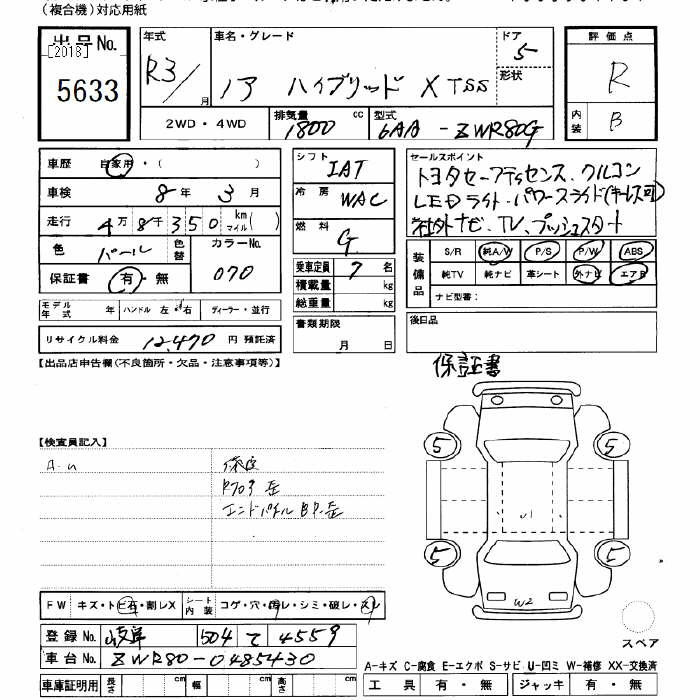 (複合機)対応用紙
出品No.
[2018]
5633
年式 車名・グレード ドア 評価点
R3/ 月 ノア ハイブリッド X TSS 5 形状 R
2WD・4WD 排気量 1800 cc 型式 6AA-ZWR80G 内装 B
車歴 自家用・( )
車検 8年 3月
走行 4万 8千 350 km マイル( )
色 パール 色替 カラーNo. 070
保証書 有・無
モデル年式 年 ハンドル 左・右 ディーラー・並行
リサイクル料金 12,470 円 預託済
シフト IAT
冷房 WAC
燃料 G
乗車定員 7 名
積載量 kg
総重量 kg
書類期限
月 日
セールスポイント
トヨタセーフティセンス、クルコン
LEDライト・パワースライド(キーレス可)
社外ナビ、TV、プッシュスタート
装備品 S/R 純A/W P/S P/W ABS
純TV 純ナビ 革シート 外ナビ エアB
ナビ型番:
後日品
保証書
【出品店申告欄(不良箇所・欠品・注意事項等)】
【検査員記入】
A.U
エンドパネル
5 5
5 5
U1
W2
スペア
FW キズ・トビ石・割レX シート内装 コゲ・穴・切レ・シミ・破レ・スレ
登録No. 岐阜 504 て 4559
車台No. ZWR80-0485430
車庫証明用 長さ cm 幅 cm 高さ cm
A-キズ C-腐食 E-エクボ S-サビ U-凹ミ W-補修 XX-交換済
工具 有・無 ジャッキ 有・無